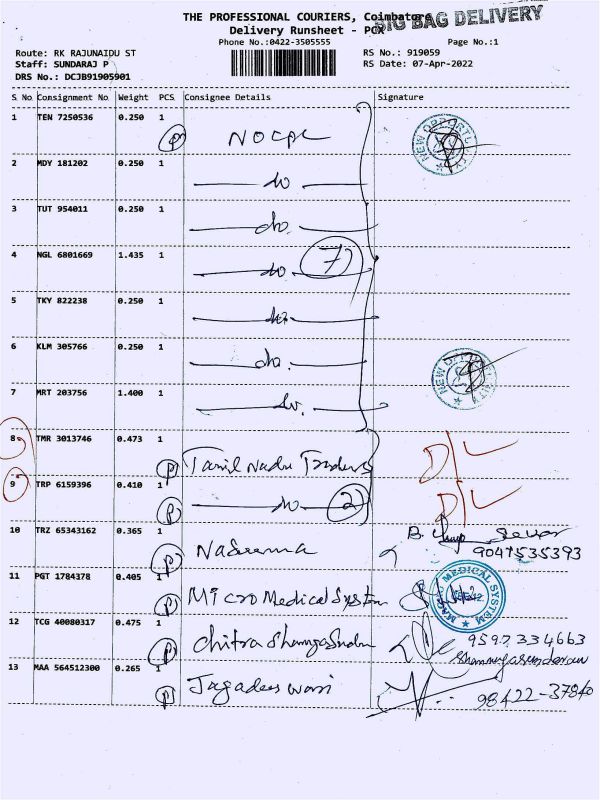 THE PROFESSIONAL COURIERS, Coimbatore
BIG BAG DELIVERY
Delivery Runsheet - PCX
Phone No.:0422-3505555 Page No.:1
Route: RK RAJUNAIDU ST RS No.: 919059
Staff: SUNDARAJ P RS Date: 07-Apr-2022
DRS No.: DCJB91905901
S No Consignment No Weight PCS Consignee Details Signature
1 TEN 7250536 0.250 1 P NOCPL NEW OPPORTUNITY
2 MDY 181202 0.250 1 do
3 TUT 954011 0.250 1 do.
4 NGL 6801669 1.435 1 do 7
5 TKY 822238 0.250 1 do.
6 KLM 305766 0.250 1 do. NEW OPPORTUNITY
7 MRT 203756 1.400 1 do.
8 TMR 3013746 0.473 1 P Tamil Nadu Traders D/L
9 TRP 6159396 0.410 1 P do 2 D/L
10 TRZ 65343162 0.365 1 P Naseema B 9047535393
11 PGT 1784378 0.405 1 P Micro Medical System MEDICAL SYSTEM
12 TCG 40080317 0.475 1 P Chitra Shanmugasundar 9597334663
Shanmugasundaram
13 MAA 564512300 0.265 1 P Jagadeeswari 98422-37840